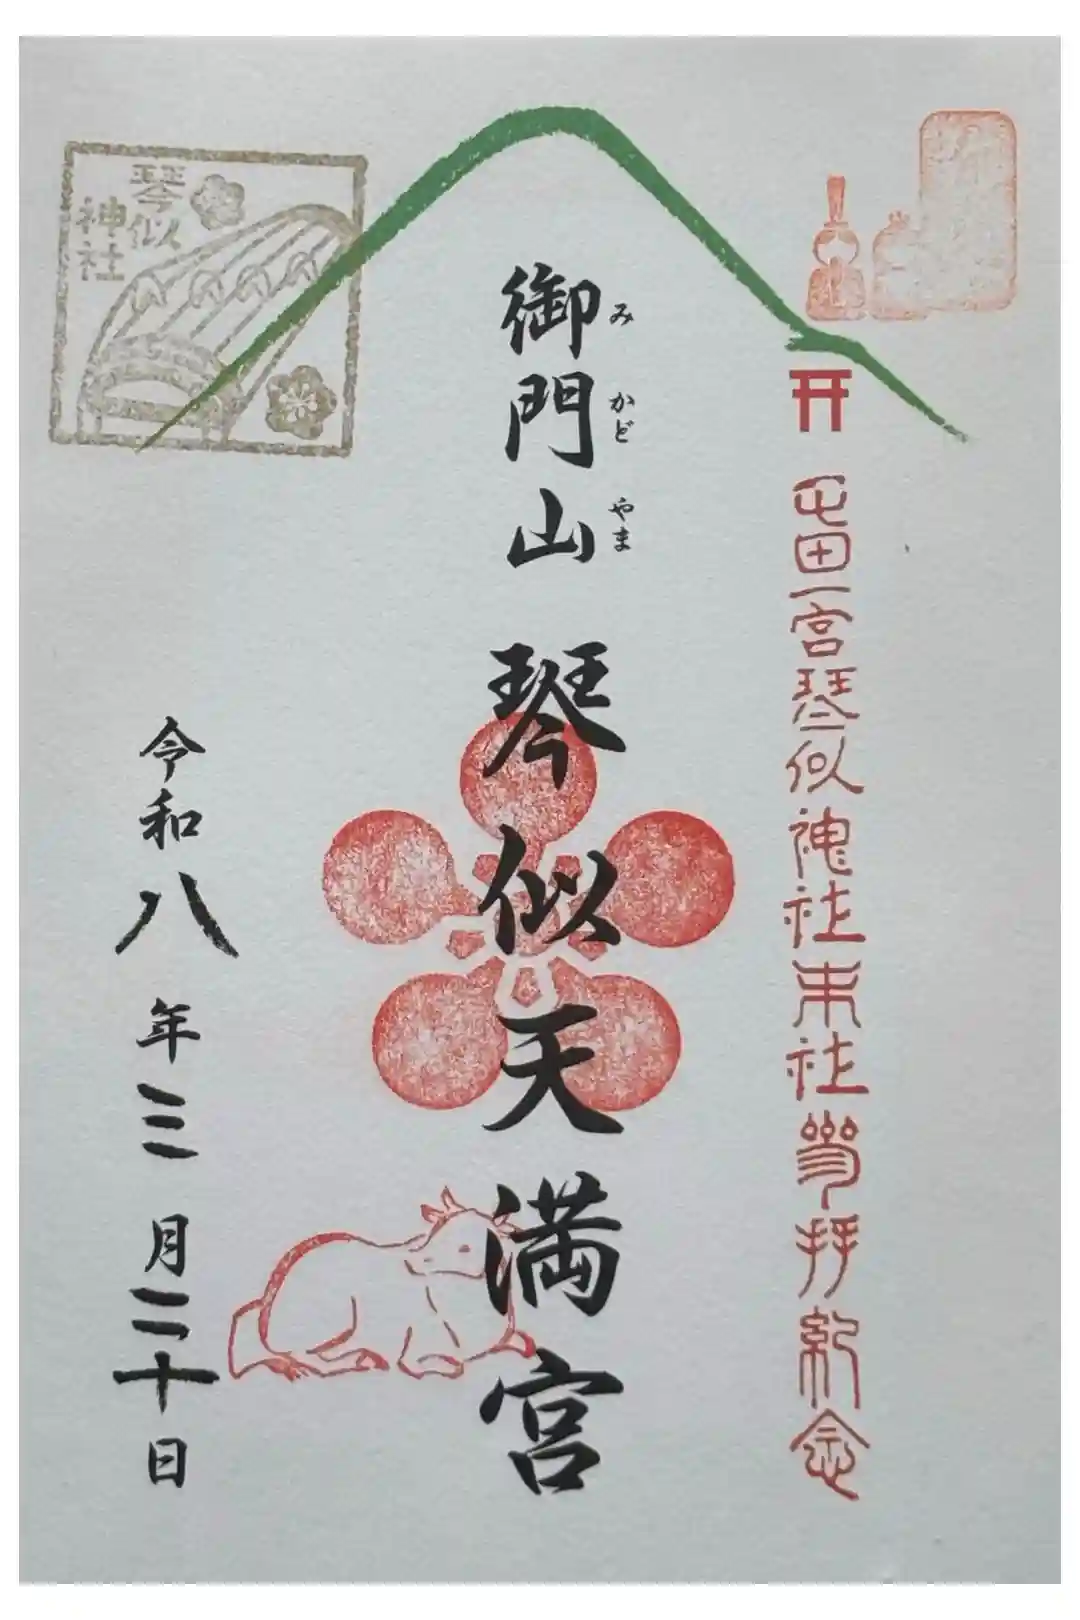 屯田一宮琴似神社末社参拝紀念
御門山 琴似天満宮
み かど やま
琴似
神社
令和八年三月二十日